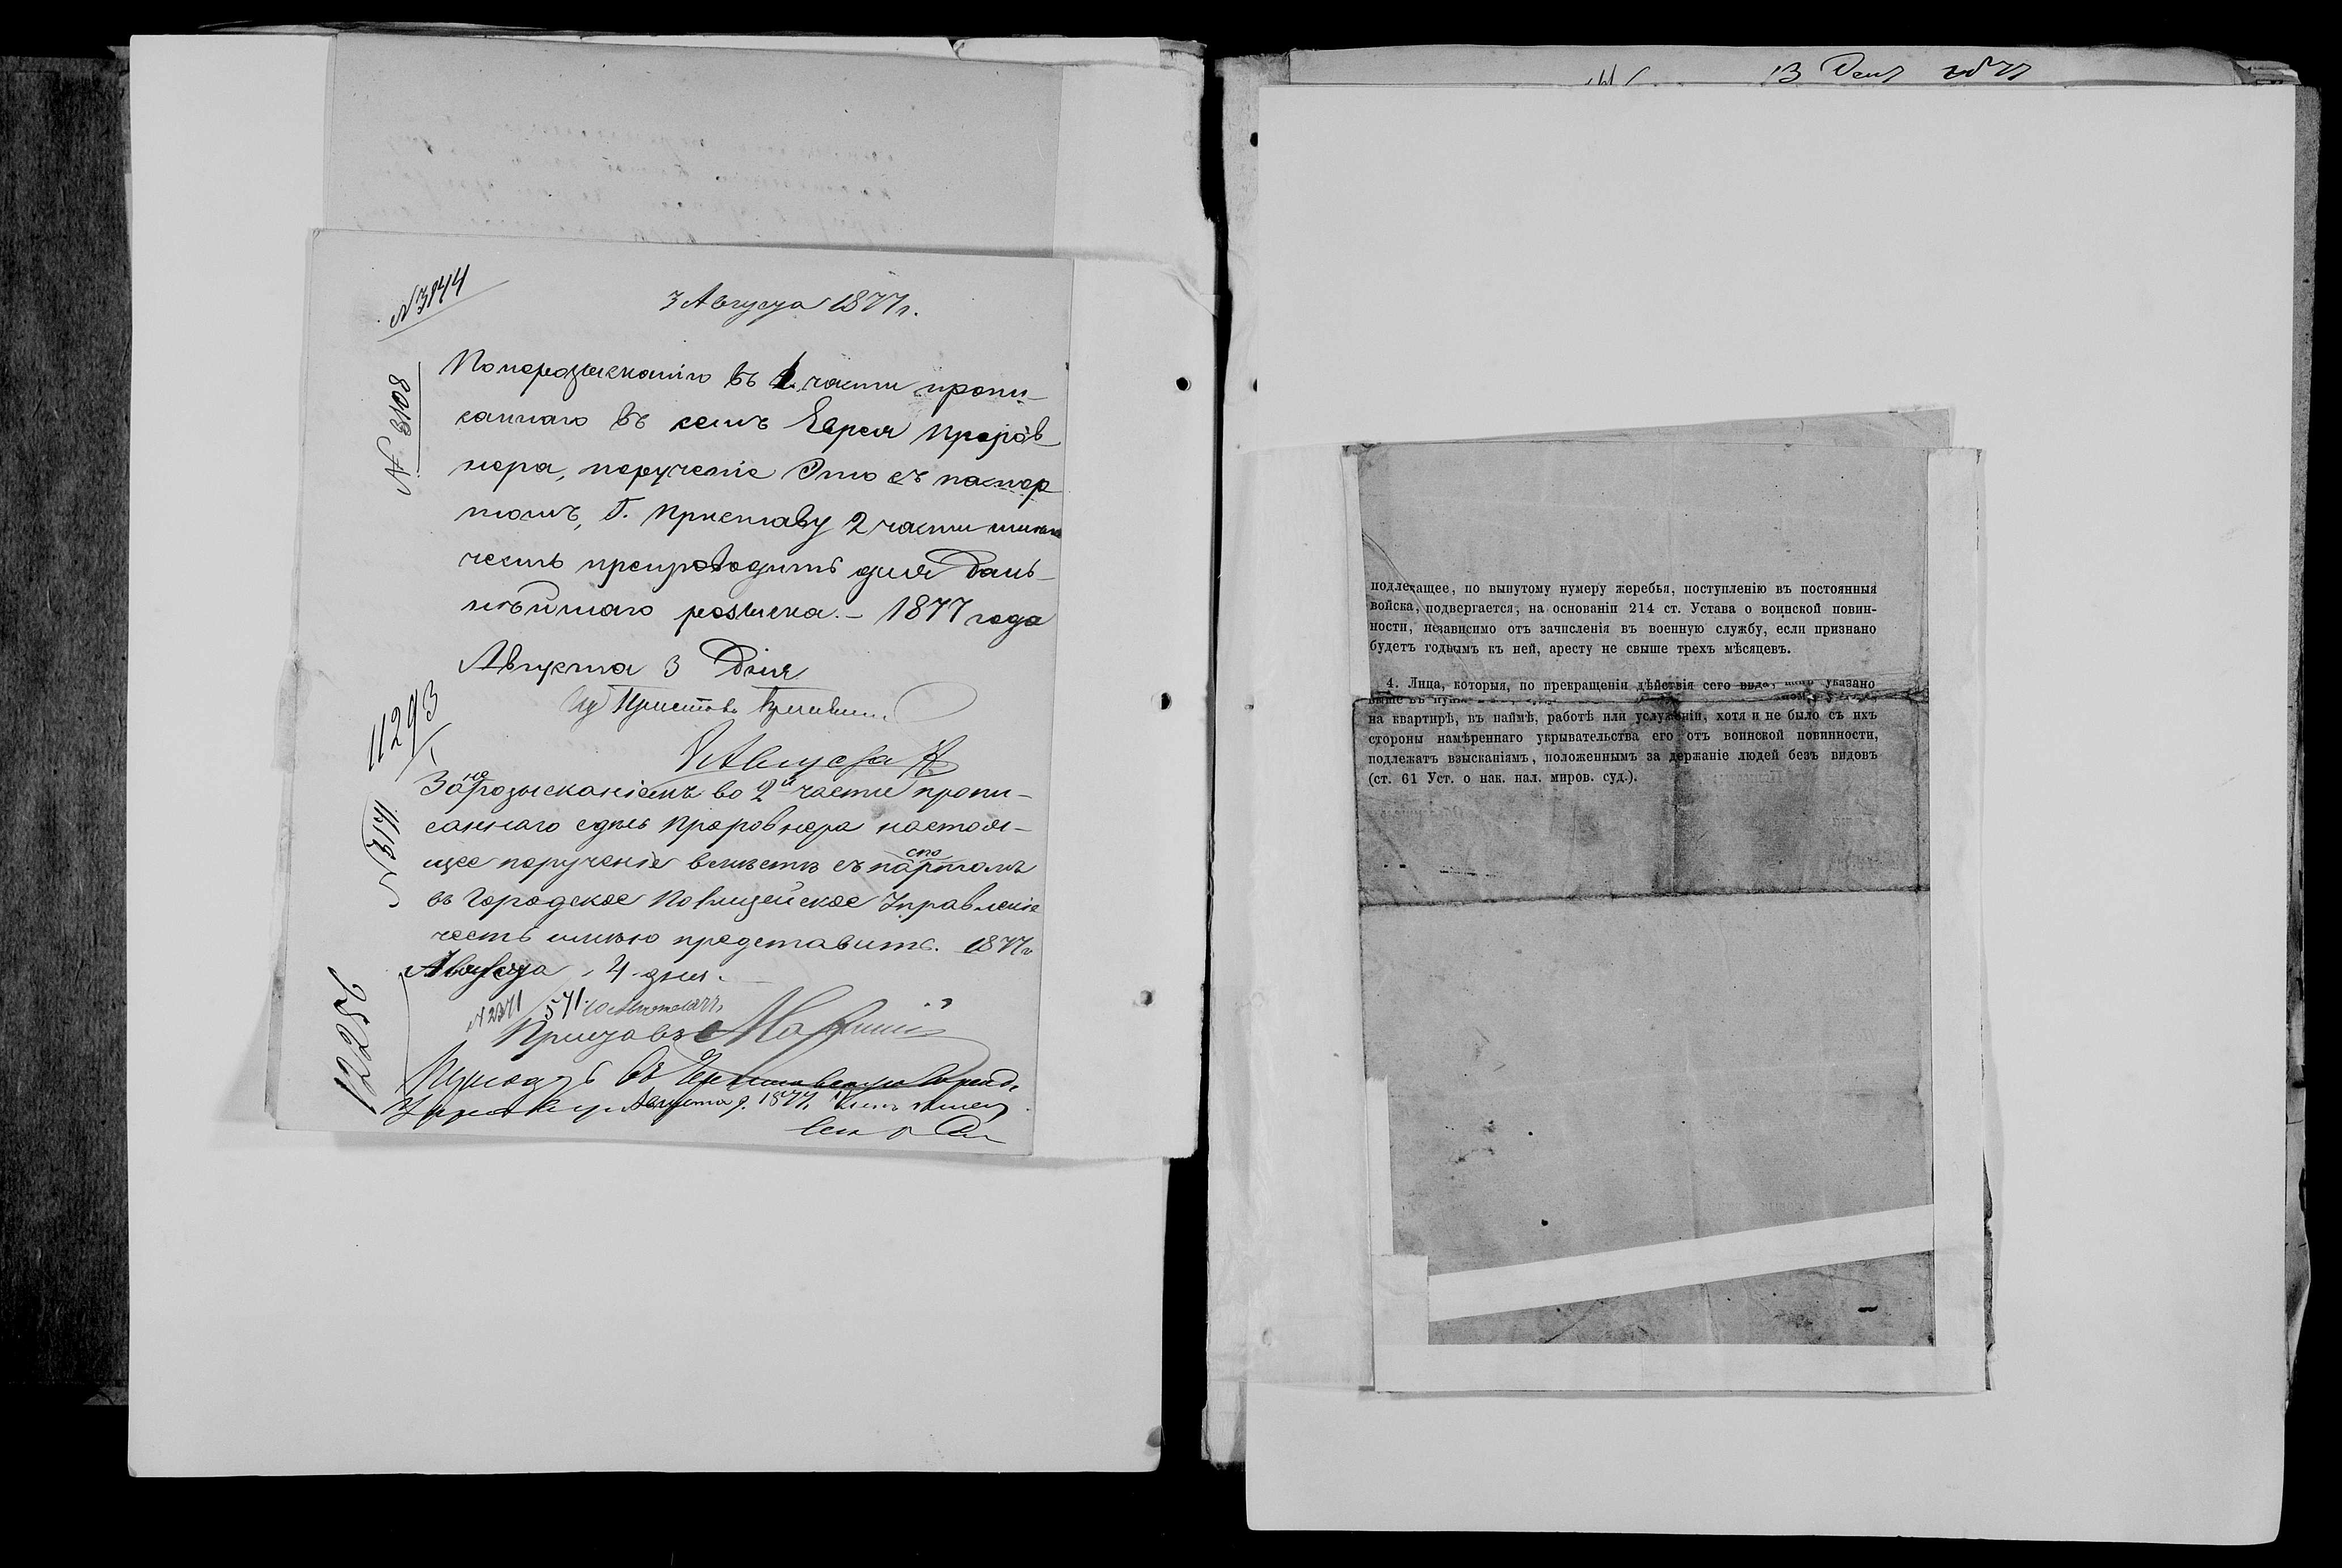 № 3144
3 Августа 1877 г.
№ 3108
По неразысканію въ 1 части пропи-
саннаго въ семъ Еврея Проров-
нера, порученіе это съ паспор
томъ, Г. Приставу 2 части имѣю
честь препроводить для даль-
нѣйшаго розыска. – 1877 года
Августа 3 дня
Ид Приставъ
11293
4 Августа
За не розысканіемъ во 2й части пропи-
саннаго здѣсь Проровнера настоя-
щее порученіе вмѣстѣ съ паспортомъ
въ Городское Полицейское Управленіе
честь имѣю представить. 1877 г
№ 3171
Августа 4 дня.
Приставъ
12256
Августа 9. 1877.
13 1877
подлежащее, по вынутому нумеру жеребья, поступленію въ постоянныя
войска, подвергается, на основаніи 214 ст. Устава о воинской повин-
ности, независимо отъ зачисленія въ военную службу, если признано
будетъ годнымъ къ ней, аресту не свыше трехъ мѣсяцевъ.
4. Лица, которыя, по прекращеніи дѣйствія сего вида, какъ указано
выше въ
на квартирѣ, въ наймѣ, работѣ или услуженіи, хотя и не было съ ихъ
стороны намѣреннаго укрывательства его отъ воинской повинности,
подлежатъ взысканіямъ, положеннымъ за держаніе людей безъ видовъ
(ст. 61 Уст. о нак. нал. миров. суд.).